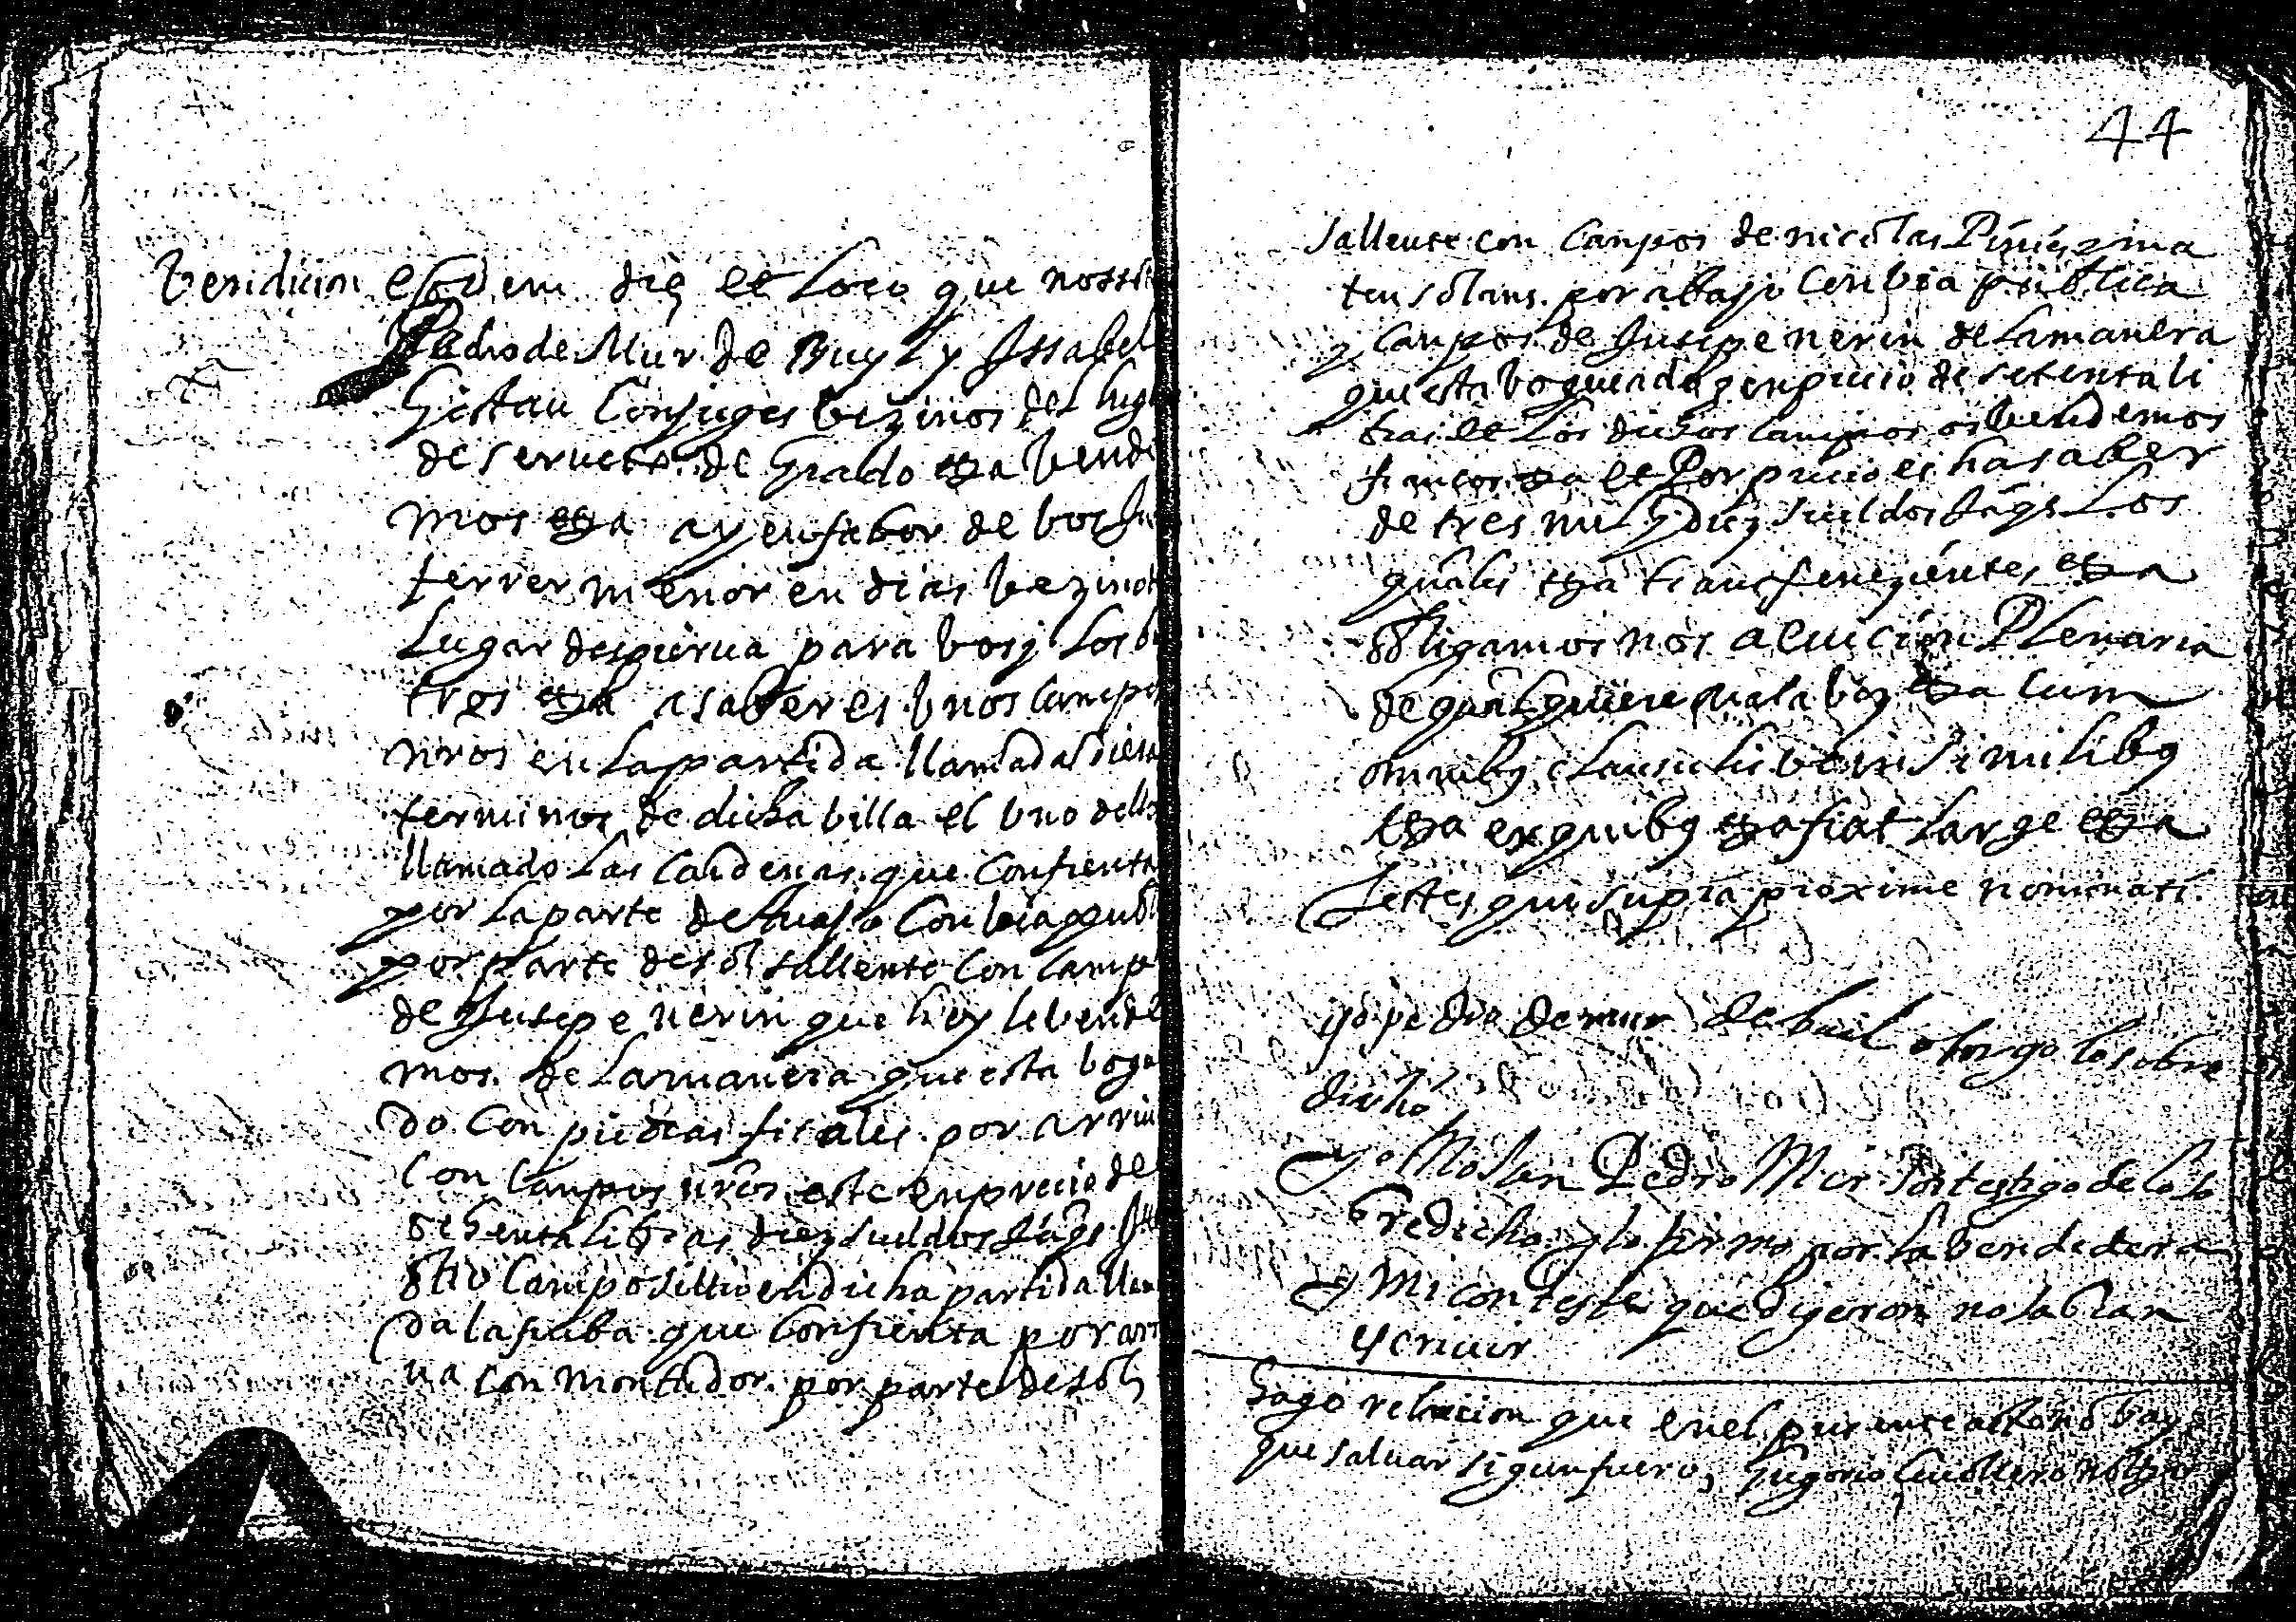 Vendicion eodem die et Loco que nos
Pedro de Mur de Buyl y Issabel
Gistau Conjuges vezinos del lug
de serveto de Grado etta vendi
mos etta a y en fabor de vos
ferrer menor en dias vezino
Lugar despierva para vos y Los
tros etta a saber es unos campos
nros en la partida llamada
terminos de dicha villa el uno dellos
llamado Las Cardenas que Confrenta
por la parte de Avajo Con via publ
por parte de sol sallente Con camp
de Jusepe nerin que hoy le vende
mos de La manera que esta boga
do Con piedras ficales por arriu
Con Campos nros este en precio de
sesenta libras diez sueldos Jaqs
otro Campo sittio en dicha partida llam
da la fueba que Confrenta por arri
ua con Montador por parte de sol
44
sallente con Campos de nicolas
por abajo Con via publica
y Campos de Jusepe nerin de La manera
que esta bogueada y en precio de setenta li
bras et Los dichos campos os vendemos
francos etta et Por precio es ha saber
de tres mil y diez sueldos Jaqs Los
quales etta transferezientes etta
obligamos nos a euicion PLenaria
de qualquiere mala voz etta cum
omnibq clausulis similibq
etta ex quibq etta fiat Large etta
Testes qui supra proxime nominati
yo pedro de mur de buil otorgo lo sobre
dicho
yo Mosen Pedro Mir soi testigo de lo so
bredicho y lo firmo por la vendedera
y mi conteste que digeron no sabian
escriuir
Hago relacion que en el presente acto no hay
que saluar segun fuero, Gregorio not